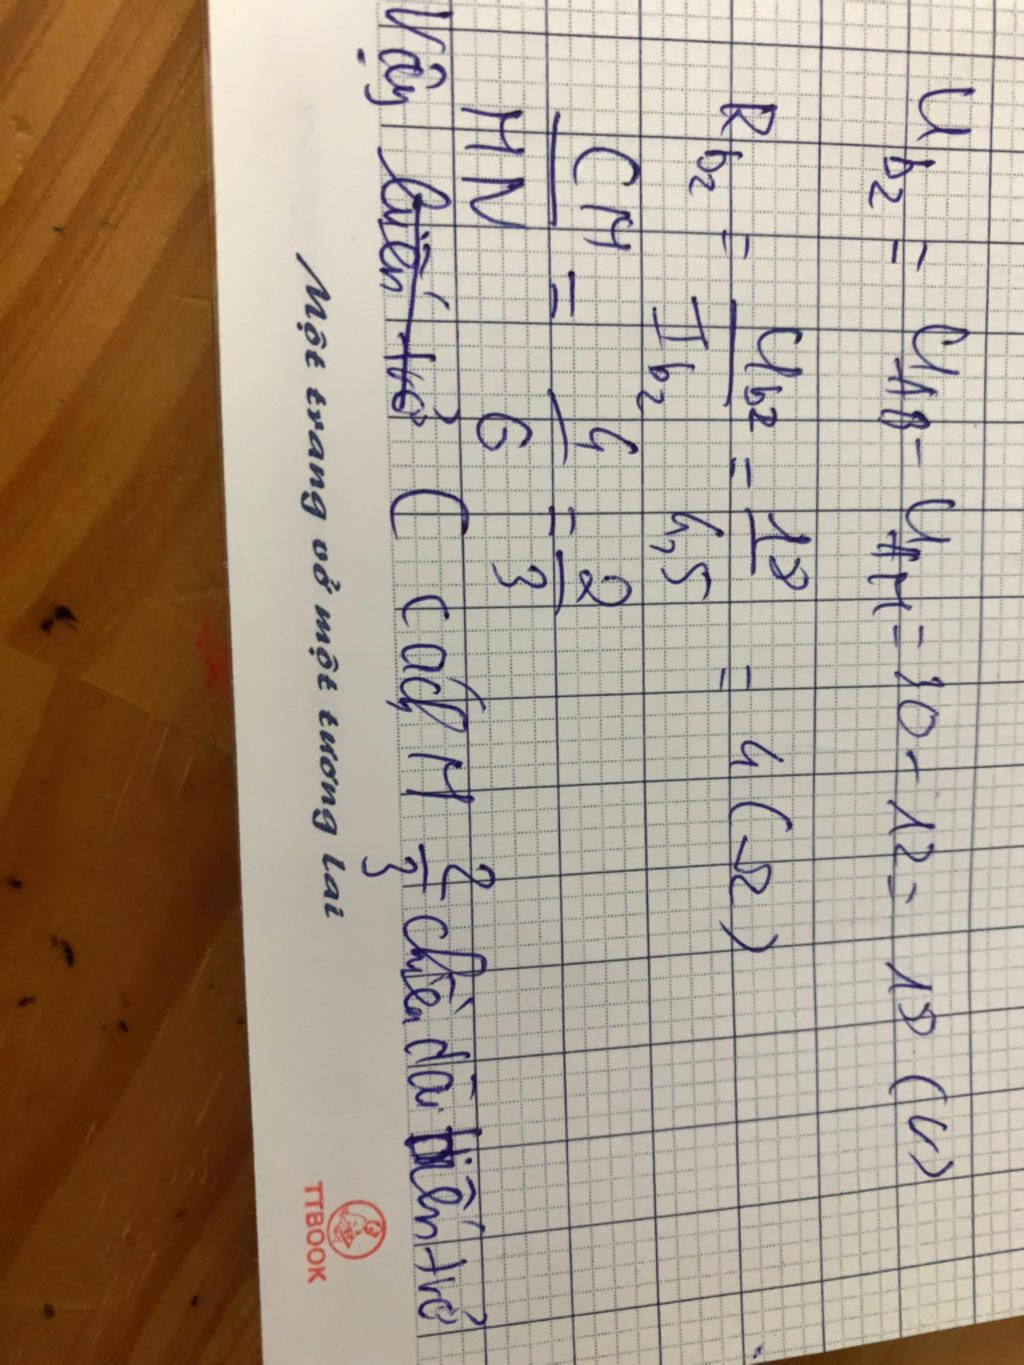 U_b2 = U_AB - U_AM = 30 - 12 = 18 (V)
R_b2 = U_b2 / I_b2 = 18 / 4,5 = 4 (Ω)
CM / MN = 4 / 6 = 2 / 3
Vậy biến trở C cách M 2/3 chiều dài biến trở
Một trang vở một tương lai
TTBOOK